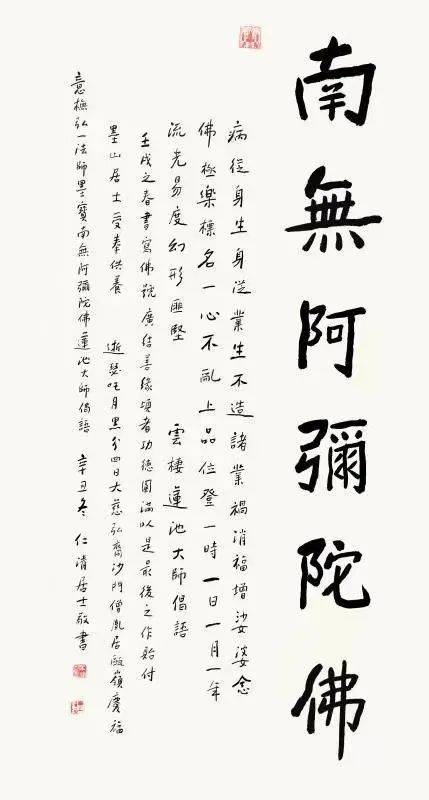 南無阿彌陀佛
病從身生身從業生不造諸業禍消福增娑婆念
佛極樂標名一心不亂上品位登一時一日一月一年
流光易度幻形匪堅 雲棲蓮池大師偈語
壬戌之春書寫佛號廣結善緣頃者功德圓滿以是最後之作貽付
墨山居士受奉供養 逝瑟吒月黑分四日大慈弘裔沙門僧胤居甌嶺慶福
意橅弘一法師墨寶南無阿彌陀佛蓮池大師偈語 辛丑冬仁清居士敬書